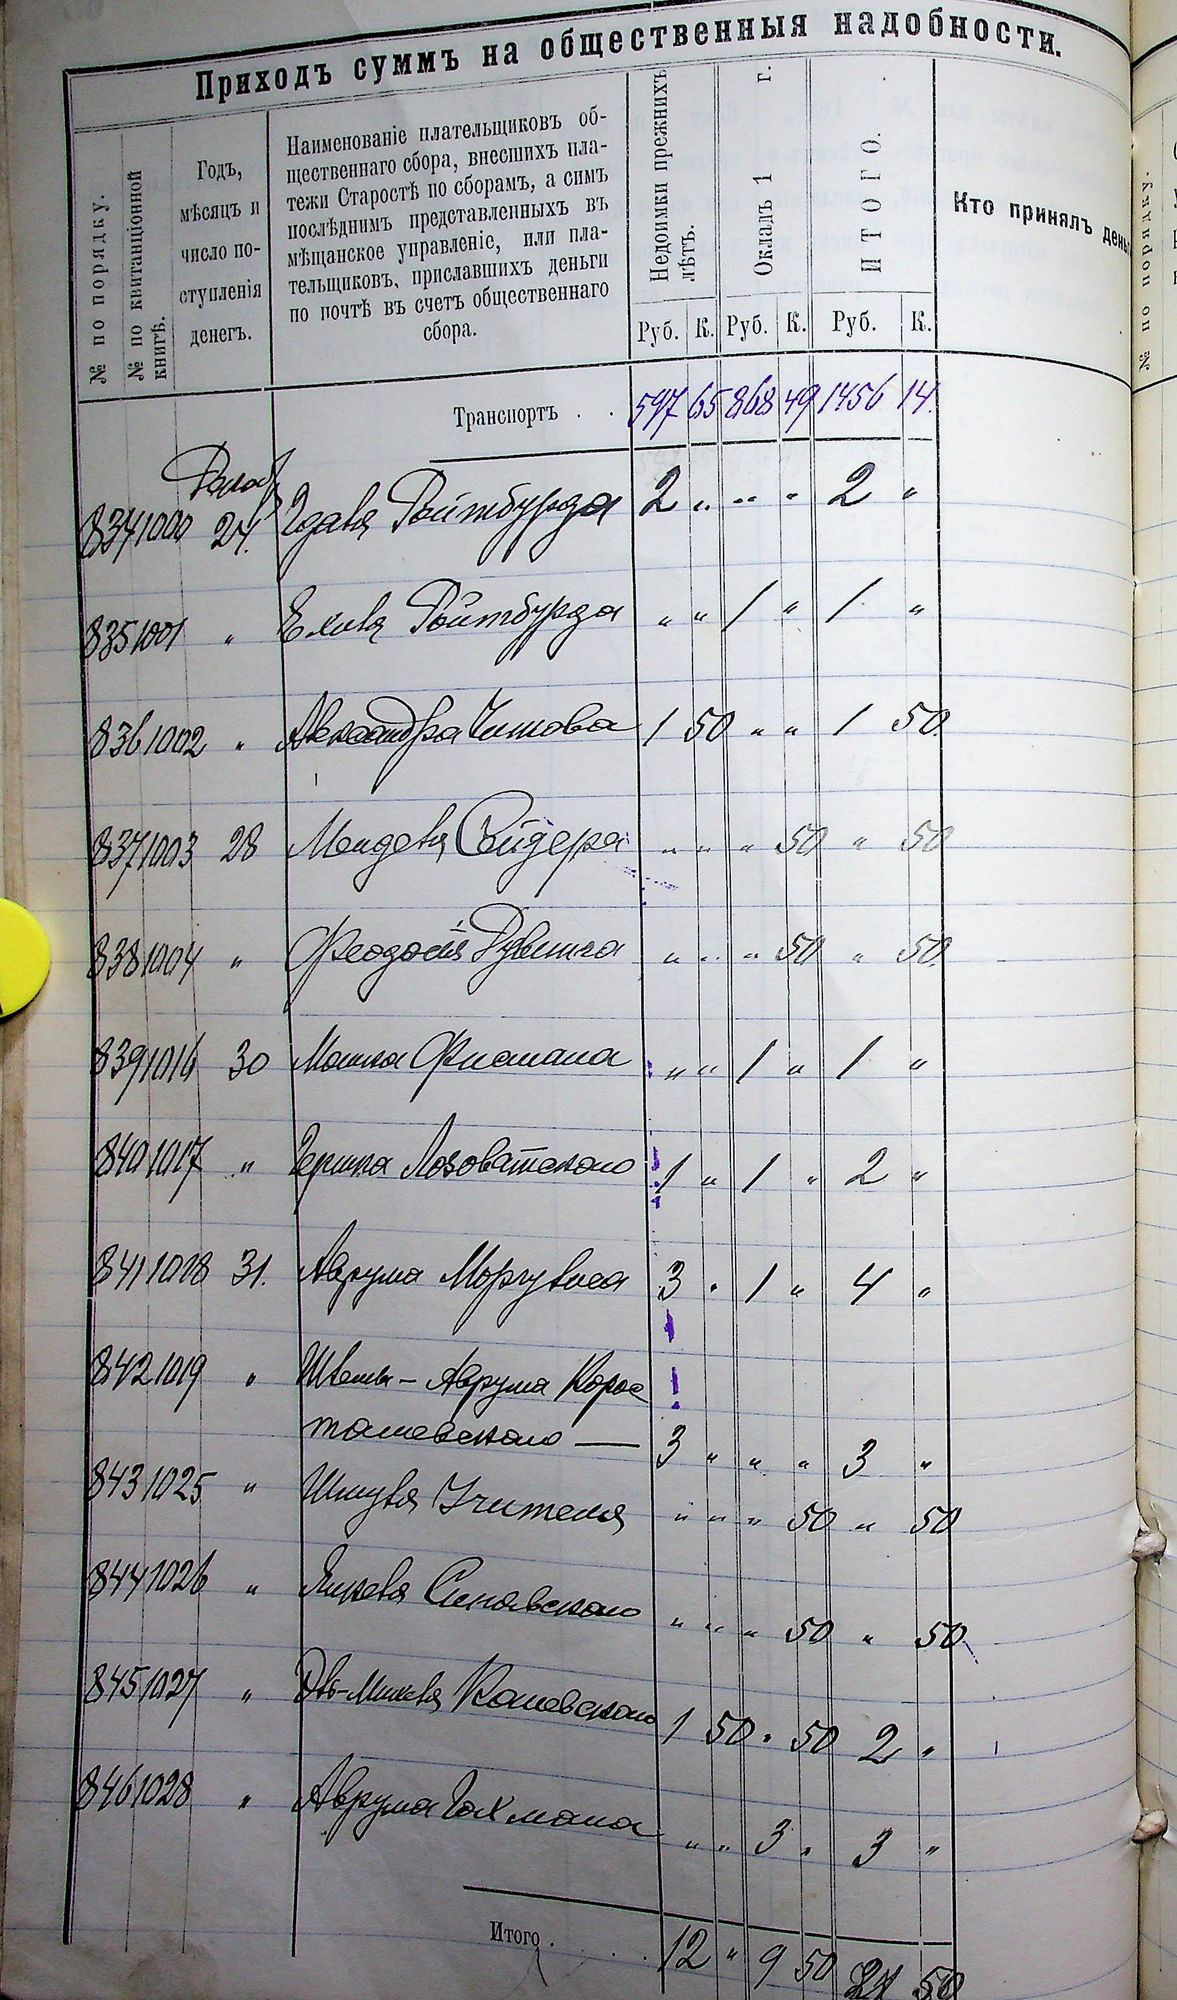 Приходъ суммъ на общественныя надобности.
№ по порядку.
№ по квитанціонной
книгѣ.
Годъ,
мѣсяцъ и
число по-
ступленія
денегъ.
Наименованіе плательщиковъ об-
щественнаго сбора, внесшихъ пла-
тежи Старостѣ по сборамъ, а симъ
послѣднимъ представленныхъ въ
мѣщанское управленіе, или пла-
тельщиковъ, приславшихъ деньги
по почтѣ въ счетъ общественнаго
сбора.
Недоимки прежнихъ
лѣтъ.
Окладъ 1 г.
ИТОГО.
Кто принялъ день
Руб. К. Руб. К. Руб. К.
Транспортъ . . 597 65 868 49 1456 14.
834 1000 24. Ройтбурда 2 " " " 2 "
835 1001 " Ройтбурда " " 1 " 1 "
836 1002 " Александра Читова 1 50 " " 1 50
837 1003 28 " " " 50 " 50
838 1004 " Феодосія " " " 50 " 50
839 1016 30 Мошка Фишмана " " 1 " 1 "
840 1017 " Гершка Лозоватскаго 1 " 1 " 2 "
841 1018 31. Аврума Моргулиса 3 " 1 " 4 "
842 1019 " Аврума Корос
тошевскаго — 3 " " " 3 "
843 1025 " Шмуля Учителя " " " 50 " 50
844 1026 " Янкеля Синявскаго " " " 50 " 50
845 1027 " 1 50 " 50 2 "
846 1028 " Аврума Гохмана " " 3 " 3 "
Итого . . . 12 " 9 50 21 50
№ по порядку.